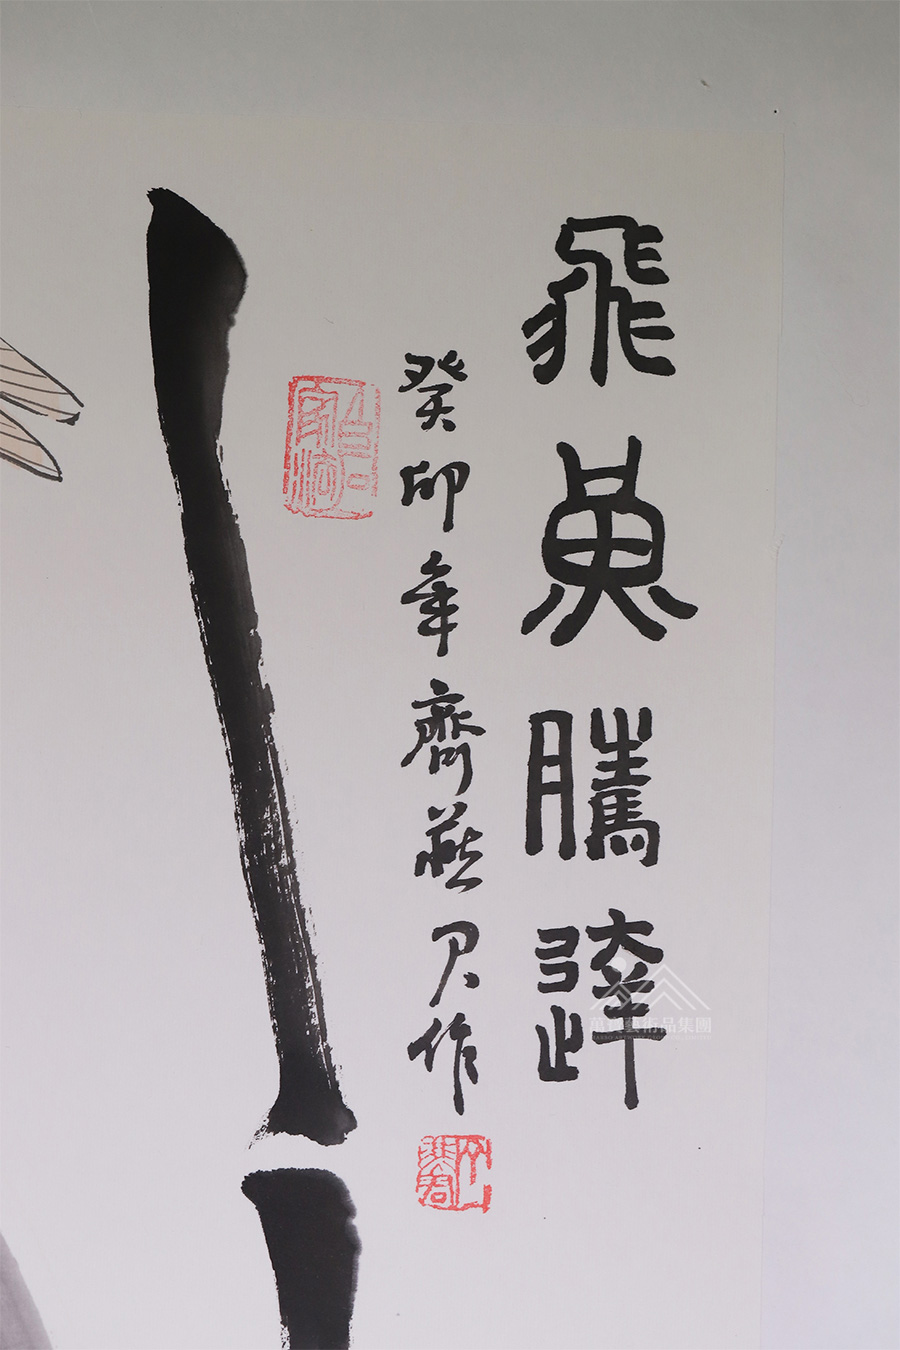 飛魚騰達
癸卯年齊燕君作
藝術品集團